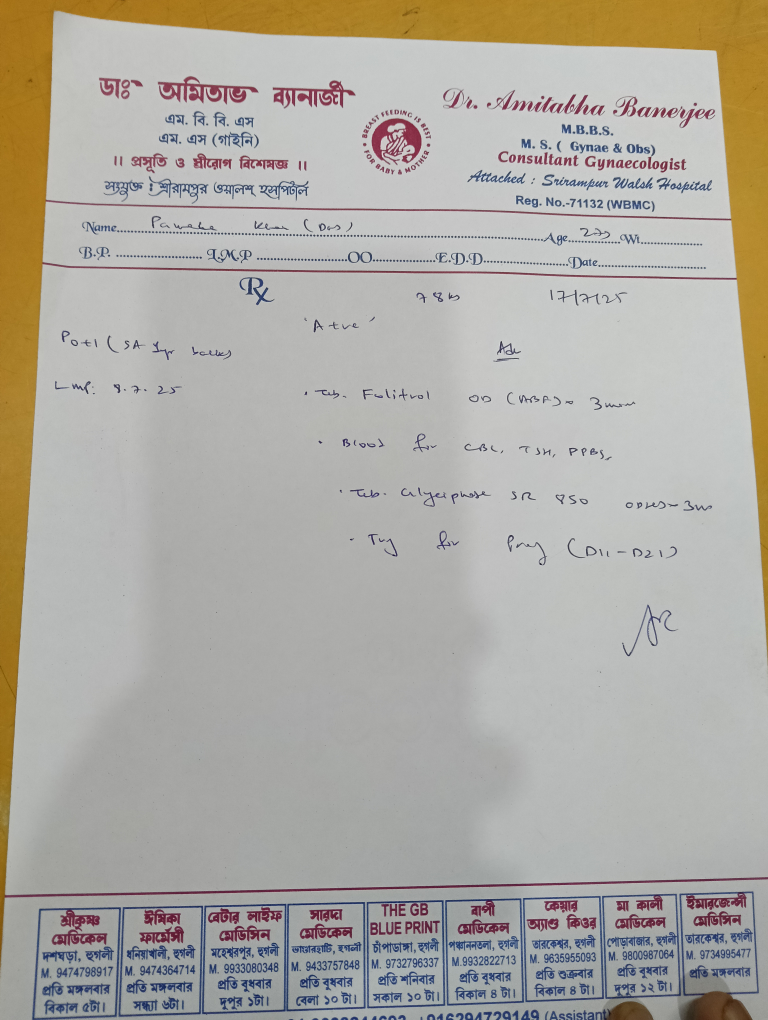 ডাঃ অমিতাভ ব্যানার্জী
এম. বি. বি. এস
এম. এস (গাইনি)
।। প্রসূতি ও স্ত্রীরোগ বিশেষজ্ঞ ।।
সংযুক্ত : শ্রীরামপুর ওয়ালশ হসপিটাল
BREAST FEEDING IS BEST
FOR BABY & MOTHER
Dr. Amitabha Banerjee
M.B.B.S.
M. S. ( Gynae & Obs)
Consultant Gynaecologist
Attached : Srirampur Walsh Hospital
Reg. No.-71132 (WBMC)
Name (Das) Age Wt
B.P. L.M.P OO E.D.D Date
Rx 17/7/25
'A +ve'
P0+1 (SA 1yr
Adv
LMP: 8.7.25
• Tab. Folitrol OD (ABF)~ 3
• Blood for CBC, TSH, PPBS,
• Tab. Glyciphage SR 850
• Try for Preg (D11-D21)
শ্রীকৃষ্ণ মেডিকেল
দশঘড়া, হুগলী
M. 9474798917
প্রতি মঙ্গলবার
বিকাল ৫টা।
ঈষিকা ফার্মেসী
ধনিয়াখালী, হুগলী
M. 9474364714
প্রতি মঙ্গলবার
সন্ধ্যা ৬টা।
বেটার লাইফ মেডিসিন
মহেশ্বরপুর, হুগলী
M. 9933080348
প্রতি বুধবার
দুপুর ১টা।
সারদা মেডিকেল
হুগলী
M. 9433757848
প্রতি বুধবার
বেলা ১০ টা।
THE GB
BLUE PRINT
চাঁপাডাঙ্গা, হুগলী
M. 9732796337
প্রতি শনিবার
সকাল ১০ টা।
বাপী মেডিকেল
পঞ্চাননতলা, হুগলী
M.9932822713
প্রতি বুধবার
বিকাল ৪ টা।
কেয়ার অ্যাণ্ড কিওর
তারকেশ্বর, হুগলী
M. 9635955093
প্রতি শুক্রবার
বিকাল ৪ টা।
মা কালী মেডিকেল
পোড়াবাজার, হুগলী
M. 9800987064
প্রতি বুধবার
দুপুর ১২ টা।
ইমারজেন্সী মেডিসিন
তারকেশ্বর, হুগলী
M. 9734995477
প্রতি মঙ্গলবার
+916294729149 (Assistant)